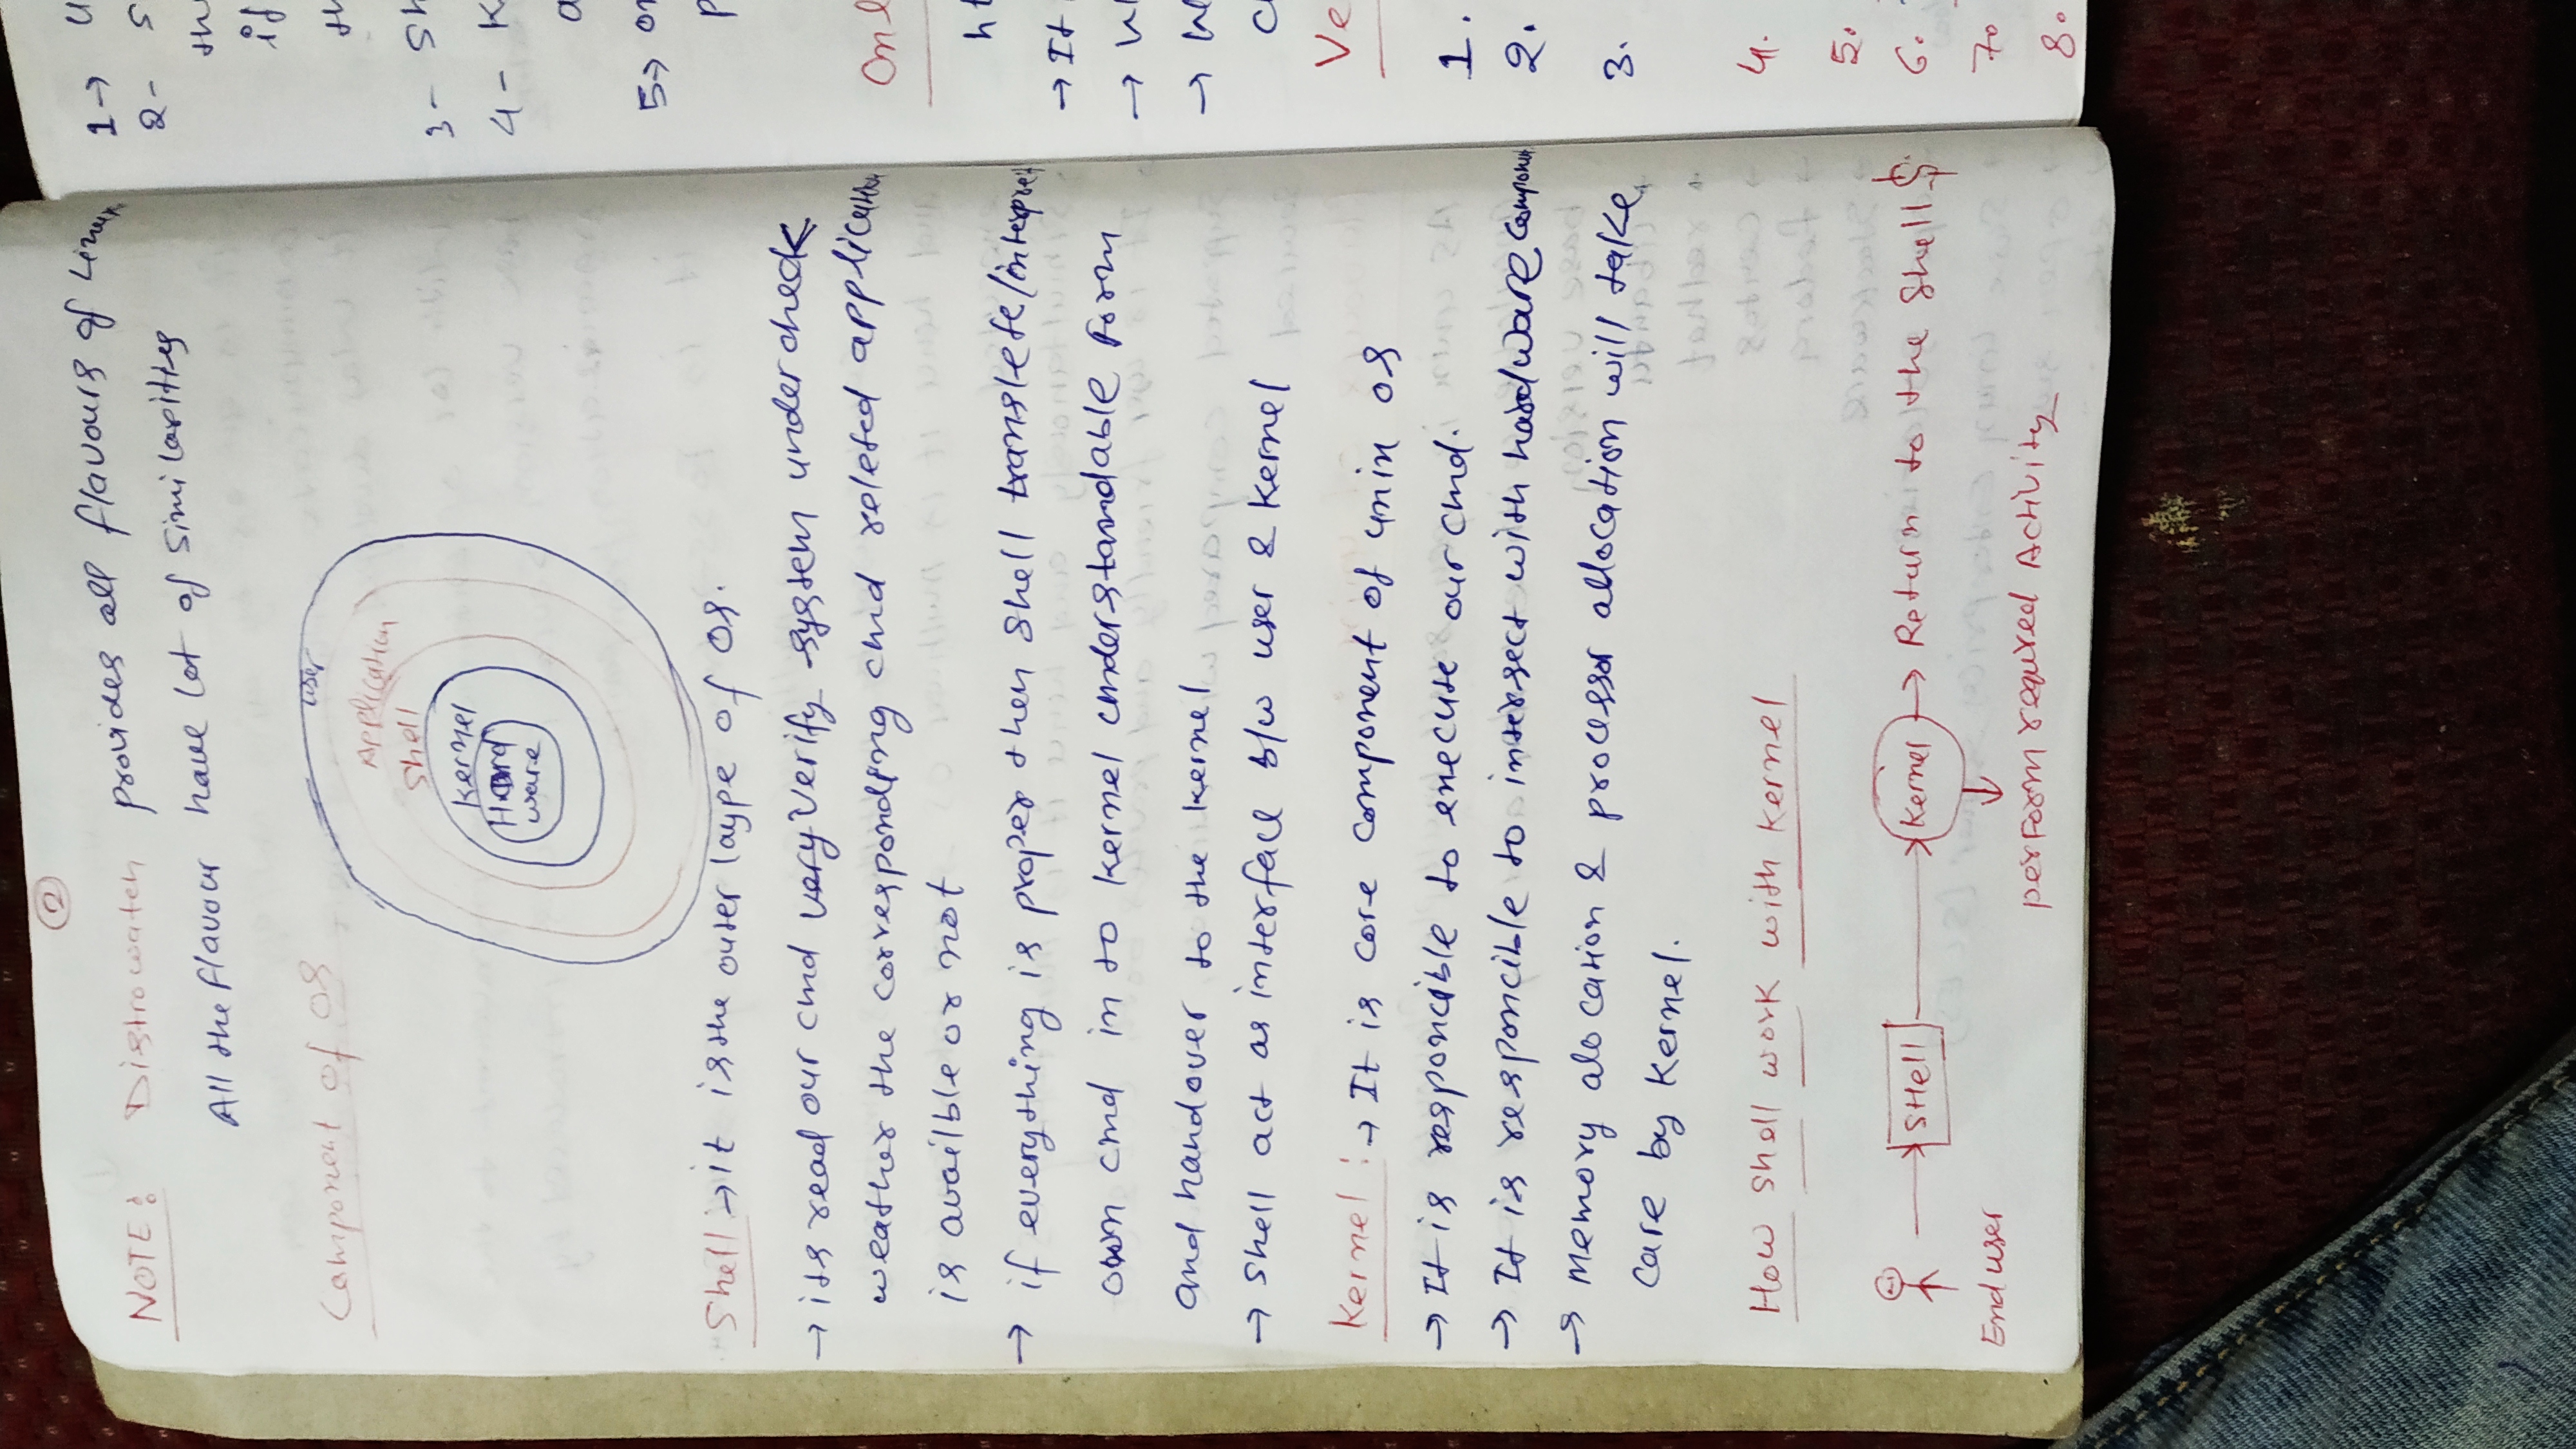 2
NOTE: Distrowatch provides all flavours of Linux
All the flavour have lot of similarities
Component of OS
User
Application
Shell
Kernel
Hard
ware
Shell → it is the outer laype of OS.
→ its read our cmd very verify system under check
weather the corresponding cmd releted application
is availble or not
→ if everything is proper then shell translete/interpret
own cmd in to kernel understandable form
and handover to the kernel
→ Shell act as interface b/w user & Kernel
Kernel : → It is core component of unix os
→ It is responcible to execute our cmd.
→ It is responcible to intersect with hardware component
→ memory alocation & processor allocation will take
care by Kernel.
How shell work with kernel
SHell Kernel → Return to the shell $
End user
perform required Activity
1→ U
2- S
th
if
th
3- Sh
4- K
a
5→ on
P
Onl
ht
→ It
→ W
→ W
C
Ve
1.
2.
3.
4.
5.
6.
7.
8.